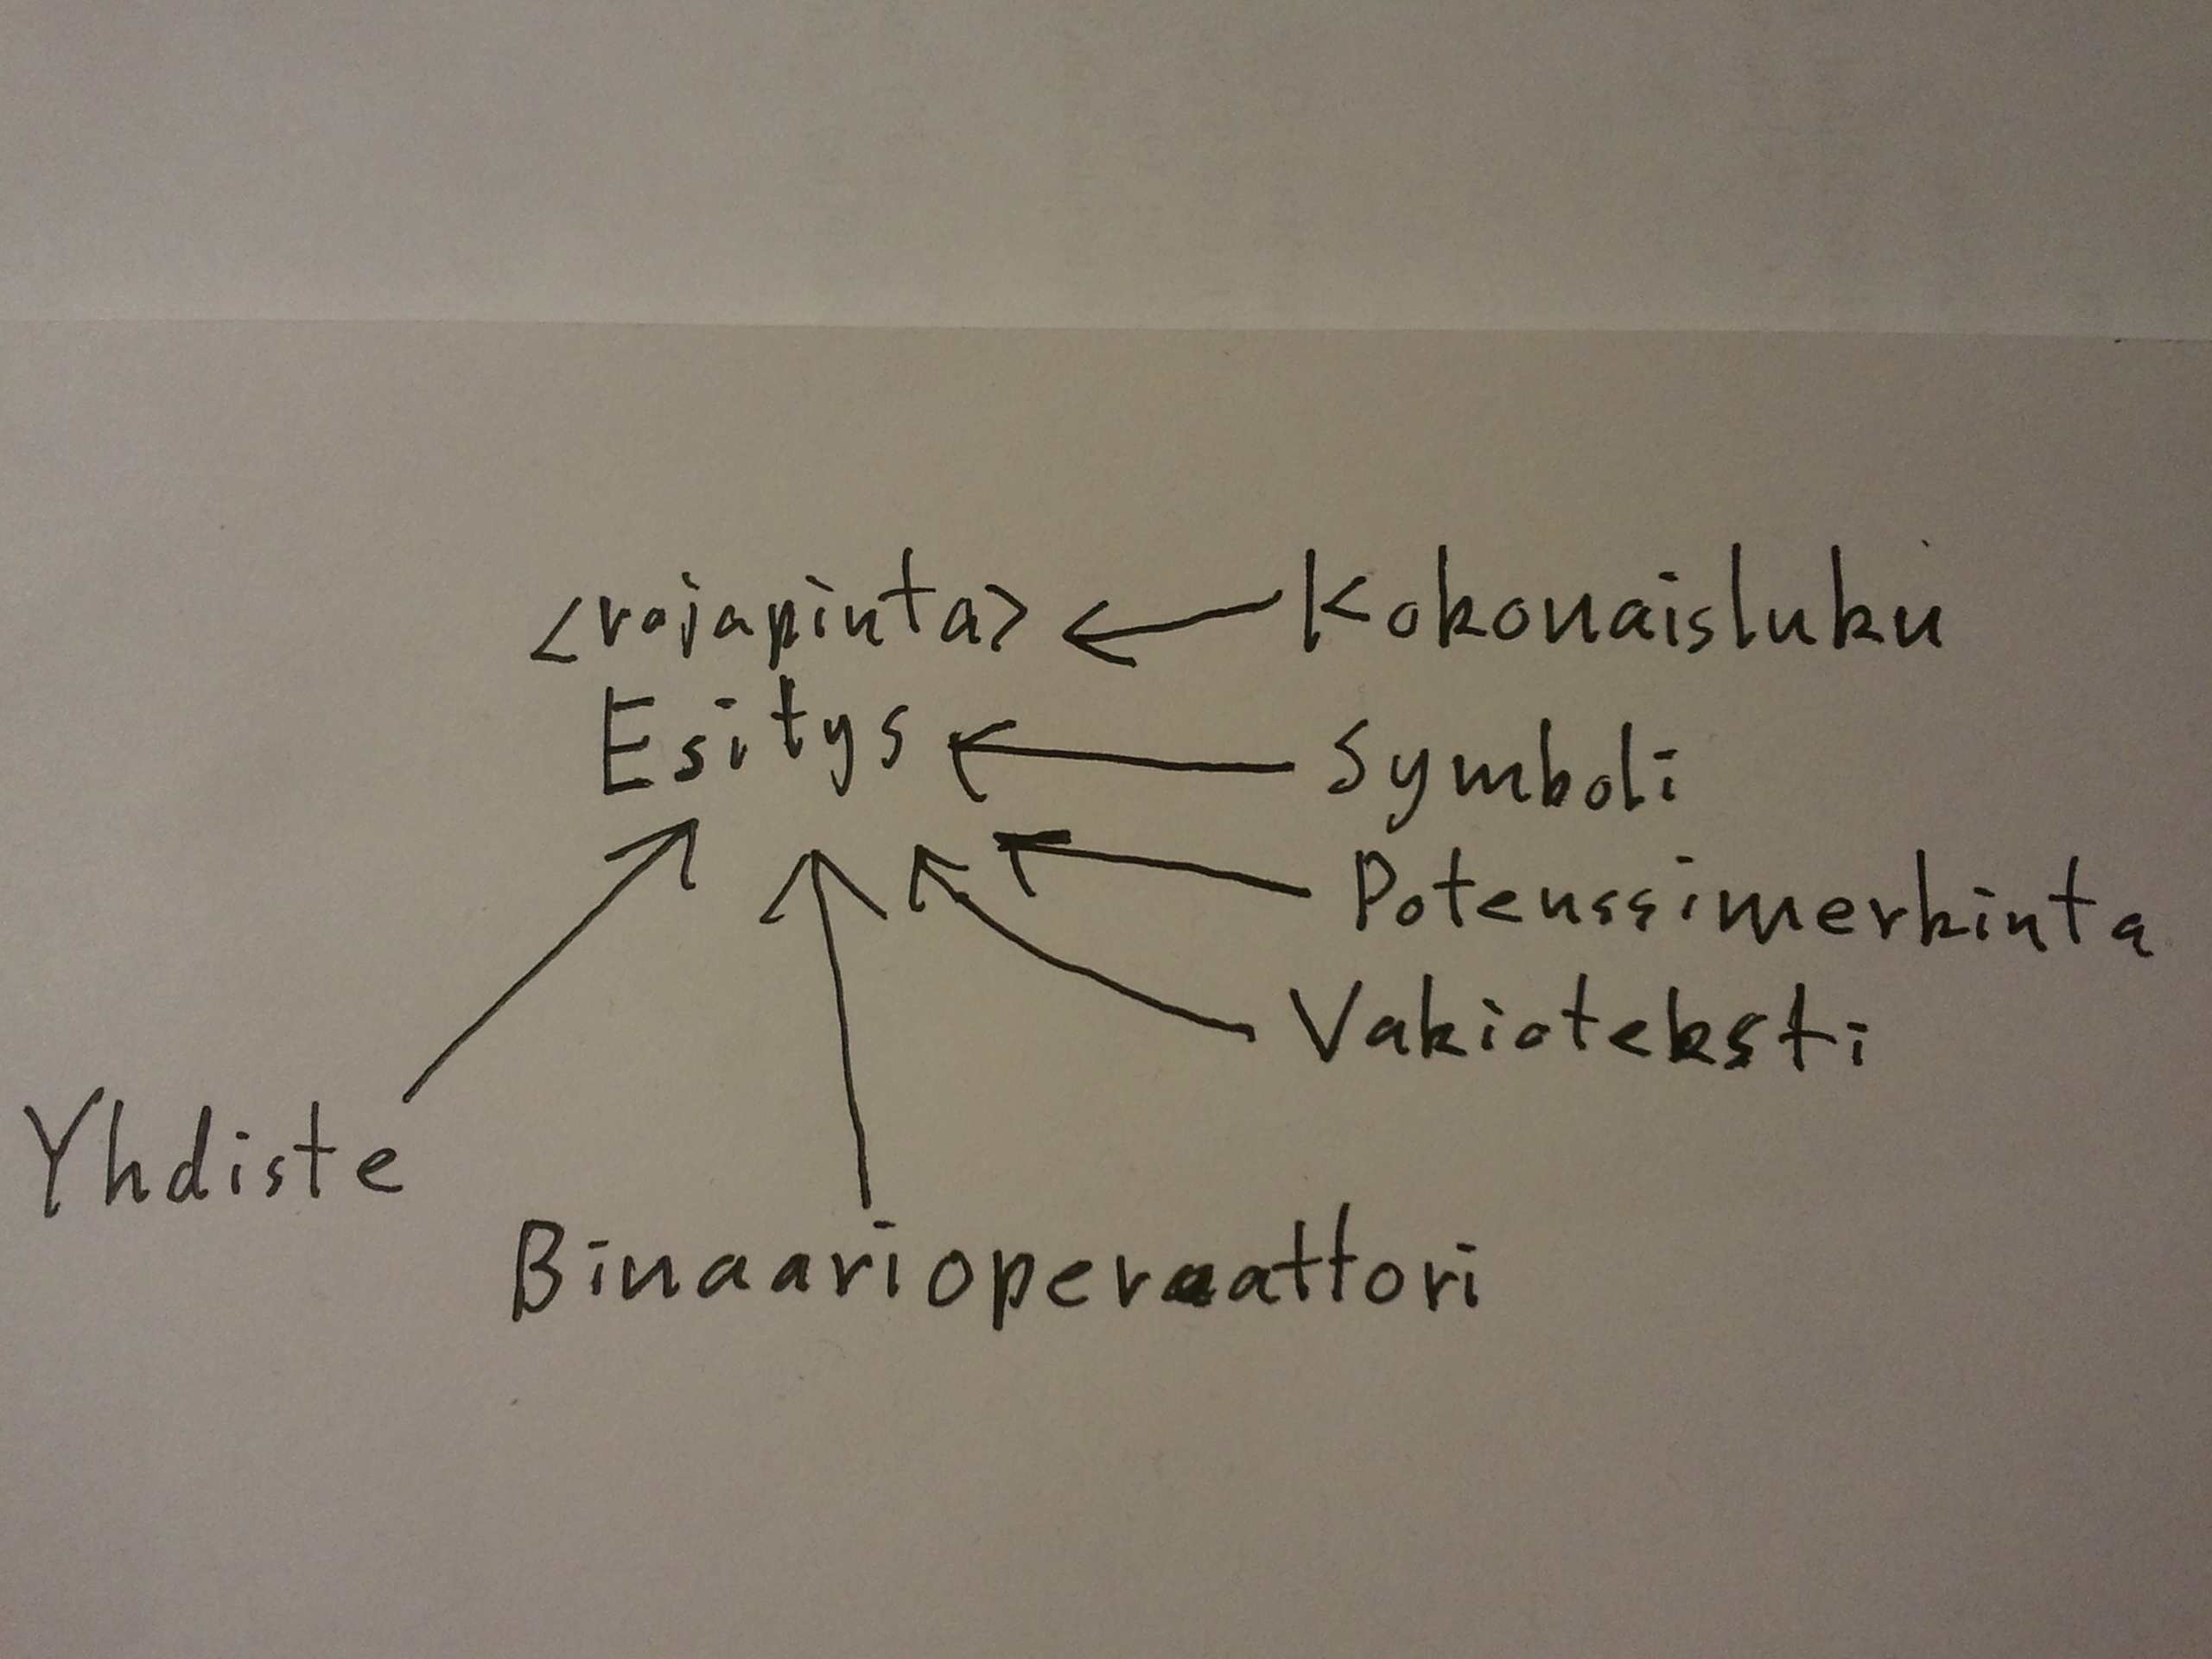 <rajapinta> Kokonaisluku
Esitys Symboli
Potenssimerkinta
Vakioteksti
Yhdiste
Binaarioperaattori